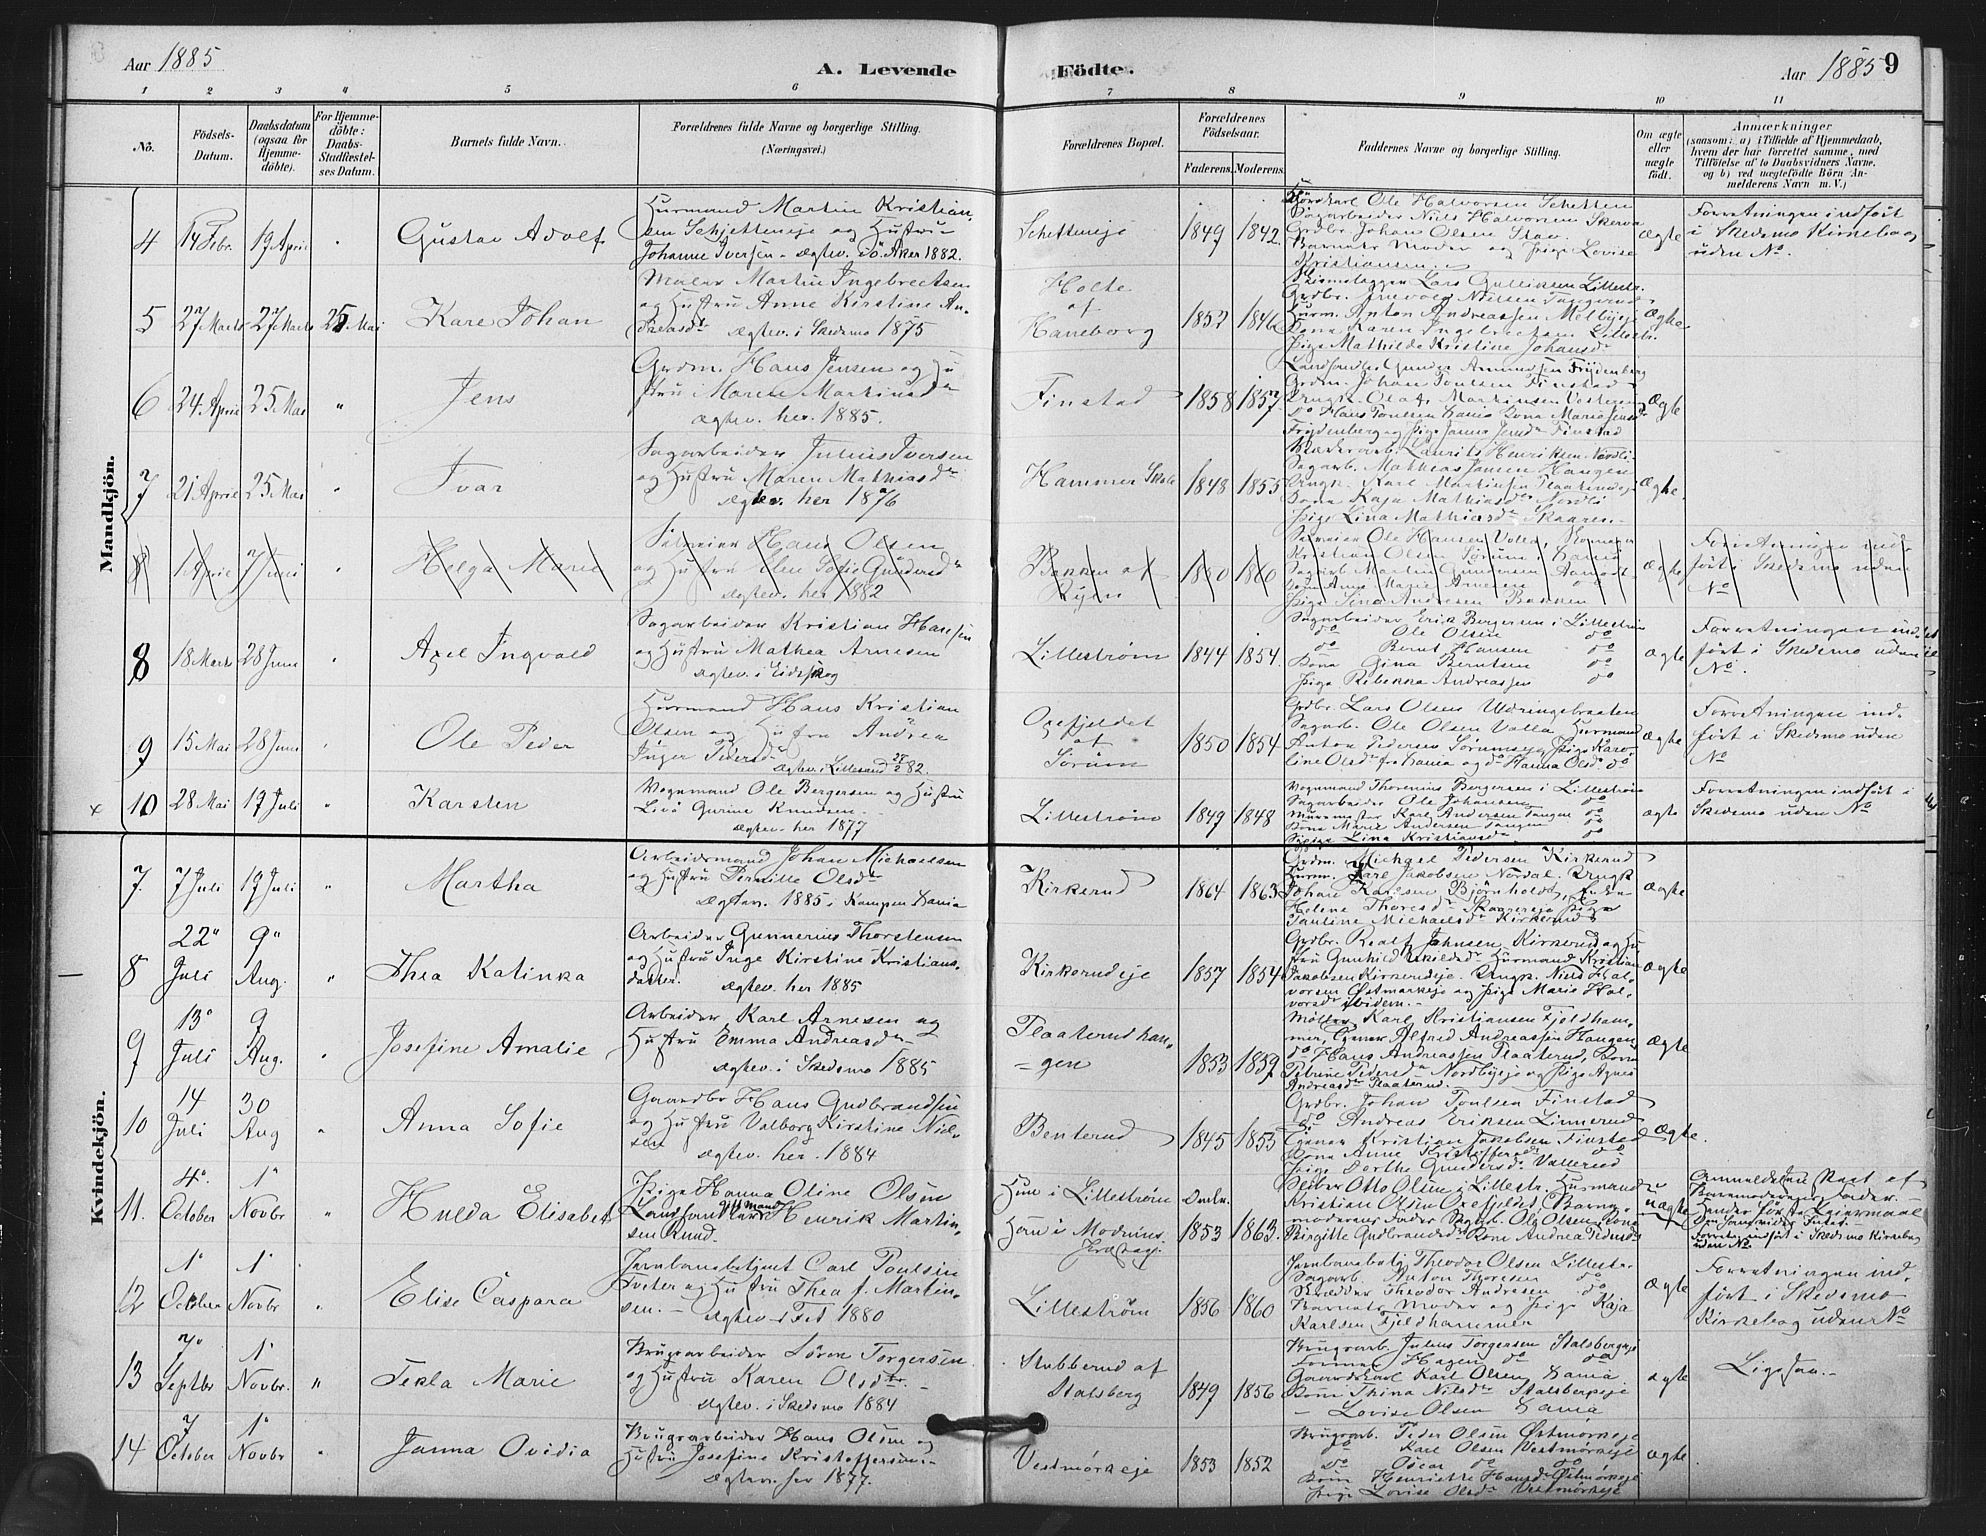 Aar 1885
A. Levende
Födte.
Aar 1885
9
1 2 3 4 5 6 7 8 9 10 11
No.
Födsels-
Datum.
Daabsdatum
(ogsaa for
Hjemme-
döbte).
For Hjemme-
döbte:
Daabs-
Stadfæstel-
ses Datum.
Barnets fulde Navn.
Forældrenes fulde Navne og borgerlige Stilling.
(Næringsvei.)
Forældrenes Bopæl.
Forældrenes
Födselsaar.
Faderens. Moderens.
Faddernes Navne og borgerlige Stilling.
Om ægte
eller
uægte
födt.
Anmærkninger
(saasom: a) i Tilfælde af Hjemmedaab,
hvem der har forrettet samme, med
Tilföielse af to Daabsvidners Navne,
og b) ved uægtefödte Börn An-
melderens Navn m. V.)
Mandkjön.
4 14 Febr. 19 April " Gustav Adolf
Huusmand Martin Kristian-
sen Schjetteneje og Hustru
Johanne Iversen - Ægtev. Aker 1882.
Schetteneje 1849 1842
Ole Halvorsen Schetten
Sagarbeider Niels Halvorsen
Grdbr. Johan Olsen
Barnets Moder og Pige Lovise
Kristiansen
Ægte
Forretningen indført
i Skedsmo Kirkebog
uden No.
5 27 Marts 27 Marts 25 Mai Kare Johan
Maler Martin Ingebretsen
og Hustru Anne Kirstine An-
dreasdr Ægtev. i Skedsmo 1875
Holte
af
Haneborg 1852 1846
Lars Gulliksen Lillestr.
Grdbr. Nielsen
Huusm. Anton Andreassen Melbyeje
Kona Karen Ingebretsen Lillestr.
Pige Mathilde Kristine Johansdr
Ægte
6 24 April 25 Mai " Jens
Grdm. Hans Jensen og Hu-
stru Maren Martinsdr
Ægtev. her. 1885.
Finstad 1858 1857
Landhandler Gunder Amundsen Frydenberg
Grdm. Johan Poulsen Finstad
Ungk. Olaf Martinsen
do Hans Poulsen Kona Maria
Frydenberg og Pige Janna Jensdr Finstad
Ægte
7 21 April 25 Mai " Ivar
Sagarbeider Julius Iversen
og Hustru Maren Mathiasdr
Ægtev. her 1876
Hammer Skole 1848 1855
Laurits Henriksen Nordli
Sagarb. Mathias Jansen Haugen
Ungk. Karl Martinsen
Kona Kaja Mathiasdr Nordli
Pige Lina Mathiasdr
Ægte
8 1 April 7 Juni " Helga Marie
Hans Olsen
og Hustru Elen Sofie Gundersdr
Ægtev. her 1882
Bakken af
1850 1860
Ole Hansen Volla,
Kristian Olsen Sørum
Sagarb. Martin Gundersen
Kona Anne Marie Arnesen
Pige Lina Andresen Bakken
Ægte
Forretningen ind-
ført i Skedsmo uden
No
8 18 Marts 28 Juni " Axel Ingvald
Sagarbeider Kristian Hansen
og Hustru Mathea Arnesen
Ægtev. i Eidskog
Lillestrøm 1844 1854
Sagarbeider Erik Bergersen i Lillestrøm
do Ole Olsen do
do Bernt Hansen do
Kona Gina Berntsen do
Pige Rebekka Andreassen do
Ægte
Forretningen ind-
ført i Skedsmo uden
No.
9 15 Mai 28 Juni Ole Peder
Huusmand Hans Kristian
Olsen og Hustru Andrea
Inger Pedersdr
Ægtev. i Lillesand 82.
Oxefjeldet
af
Sørum 1850 1854
Grdbr. Lars Olsen
Sagarb. Ole Olsen Volla Huusmand
Anton Pedersen Sørumseje Pige Karo-
line Olsdr fra samme og do Hanna Olsdr do
Ægte
Forretningen ind-
ført i Skedsmo uden
No
x 10 28 Mai 19 Juli " Karsten
Vognmand Ole Bergersen og Hustru
Livø Gurine Knudsen
Ægtev. her 1877
Lillestrøm 1849 1848
Vognmand Thorenius Bergersen i Lillestrøm
Sagarbeider Ole Johansen do
Muurmester Karl Andersen Tangen do
Kona Marie Andersen Tangen do
Pige Lina Kristiansdr do
Ægte
Forretningen indført i
Skedsmo uden No
Kvindekjön.
7 7 Juli 19 Juli " Martha
Arbeidsmand Johan Michaelsen
og Hustru Pernille Olsdr
Ægtev. 1885 i Kampen Xania
Kirkerud 1864 1863
Grdm. Michael Pedersen Kirkerud
Huusm. Karl Jakobsen Nordal. Ungk
Johan Karlsen Bjørnholdt, Enke
Helene Thoresdr Pige
Pauline Michaelsdr Kirkerud
Ægte
8 22" Juli 9" Aug. " Thea Katinka
Arbeider Gunnerius Thorstensen
og Hustru Inge Kirstine Kristians-
datter. Ægtev. her 1885
Kirkerudeje 1857 1854
Grdbr. Johnsen Kirkerud og Hu-
stru Gunhild Huusmand Kristian
Jakobsen Kirkerudeje. Ungk. Niels Hal-
vorsen Østmarkeje og Pige Marie Hal-
vorsdr ibidem. -
Ægte
9 13" Juli 9 Aug. " Josefine Amalie
Arbeider Karl Arnesen og
Hustru Emma Andreasdr -
Ægtev. i Skedsmo 1885
Plaaterudhau-
=gen 1853 1859
Møller Karl Kristiansen Fjeldham-
mer, Gjener Alfred Andreassen Haugen
do Hans Andreassen Plaaterud, Kona
Petrine Pedersdr Nordbyeje og Pige Agnes
Andreasdr Plaaterud.
Ægte
10 14 Juli 30 Aug " Anna Sofie
Gaardbr Hans Gudbrandsen
og Hustru Valborg Kirstine Niel-
sen Ægtev. her. 1884
Benterud 1845 1855
Grdbr. Johan Poulsen Finstad
do Andreas Eriksen Linnerud
Gjener Kristian Jakobsen Finstad
Kona Anne Kristoffersdr do
Pige Dorthe Gundersdr Vallerud
Ægte.
11. 4" October 1" Novbr " Hulda Elisabet
Pige Hanna Oline Olsen
Landhandler Henrik Martin-
sen Rund.
Hun i Lillestrøm
Han i Modums
Præstegj. 1853 1863
Otto Olsen i Lillestr. Huusmand
Kristian Olsen Oxefjeldet Barne-
moderens Fader Sagarb. Ole Olsen, Kona
Birgitte Gudbrandsdr Kone Andrea Pedersdr
uægte
Anmeldelsen skeet af
Barnemoderens Fader. -
Hendes første Leiermaal
Forretn. indført i Skedsmo Kirkebog
uden No.
12 1" October 1" Novbr " Elise Caspara
Jernbanebetjent Carl Poulsen
Tveter og Hustru Thea J. Martin-
sen. - Ægtev. i Fet 1880
Lillestrøm 1856 1860
Jernbanebetj. Theodor Olsen Lillestr.
Sagarb. Anton Thoresen do
Skrædder Theodor Andresen do
Barnets Moder og Pige Kaja
Karlsen Fjeldhammer
Ægte
Forretningen ind-
ført i Skedsmo
Kirkebog uden No
13 7" Septbr 1" Novbr. " Tekla Marie
Brugsarbeider Søren Torgersen
og Hustru Karen Olsdtr. -
Ægtev. i Skedsmo 1884
Stubberud af
Stalsberg 1849 1856
Brugsarb. Julius Torgersen Stalsbergeje
Formand Hagen do do
Gaardskarl Karl Olsen Xania
Kone Thina Nilsdr Stalsbergeje
- Lovise Olsen Xania
ægte
Ligesaa. -
14 7 October 1" Novbr " Janna Ovidia
Brugsarbeider Hans Olsen og
Hustru Josefine Kristoffersen -
Ægtev. her 1877.
Vestmørkeje 1853 1852
Brugsarb. Peder Olsen Østmørkeje
do Karl Olsen Vestmørkeje
do Oscar do do
Kone Henriette Hansdr Østmørkeje
Pige Lovise Olsdr Vestmørkeje
Ægte